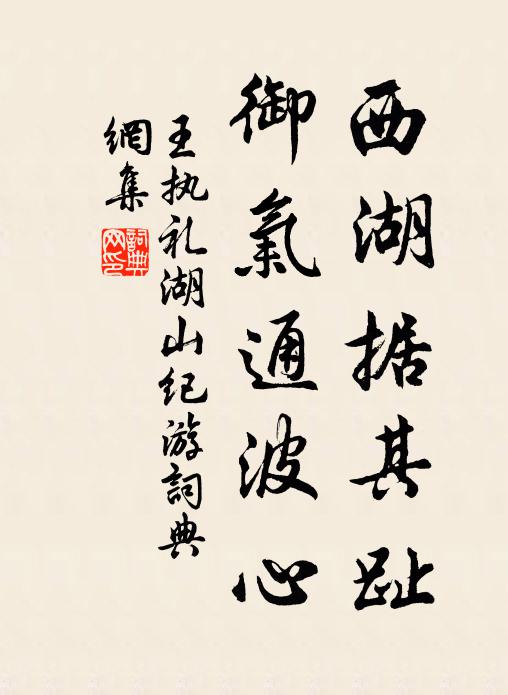 西湖据其趾
御氣通波心
王执礼湖山纪游詞典
網集
詞典
网印